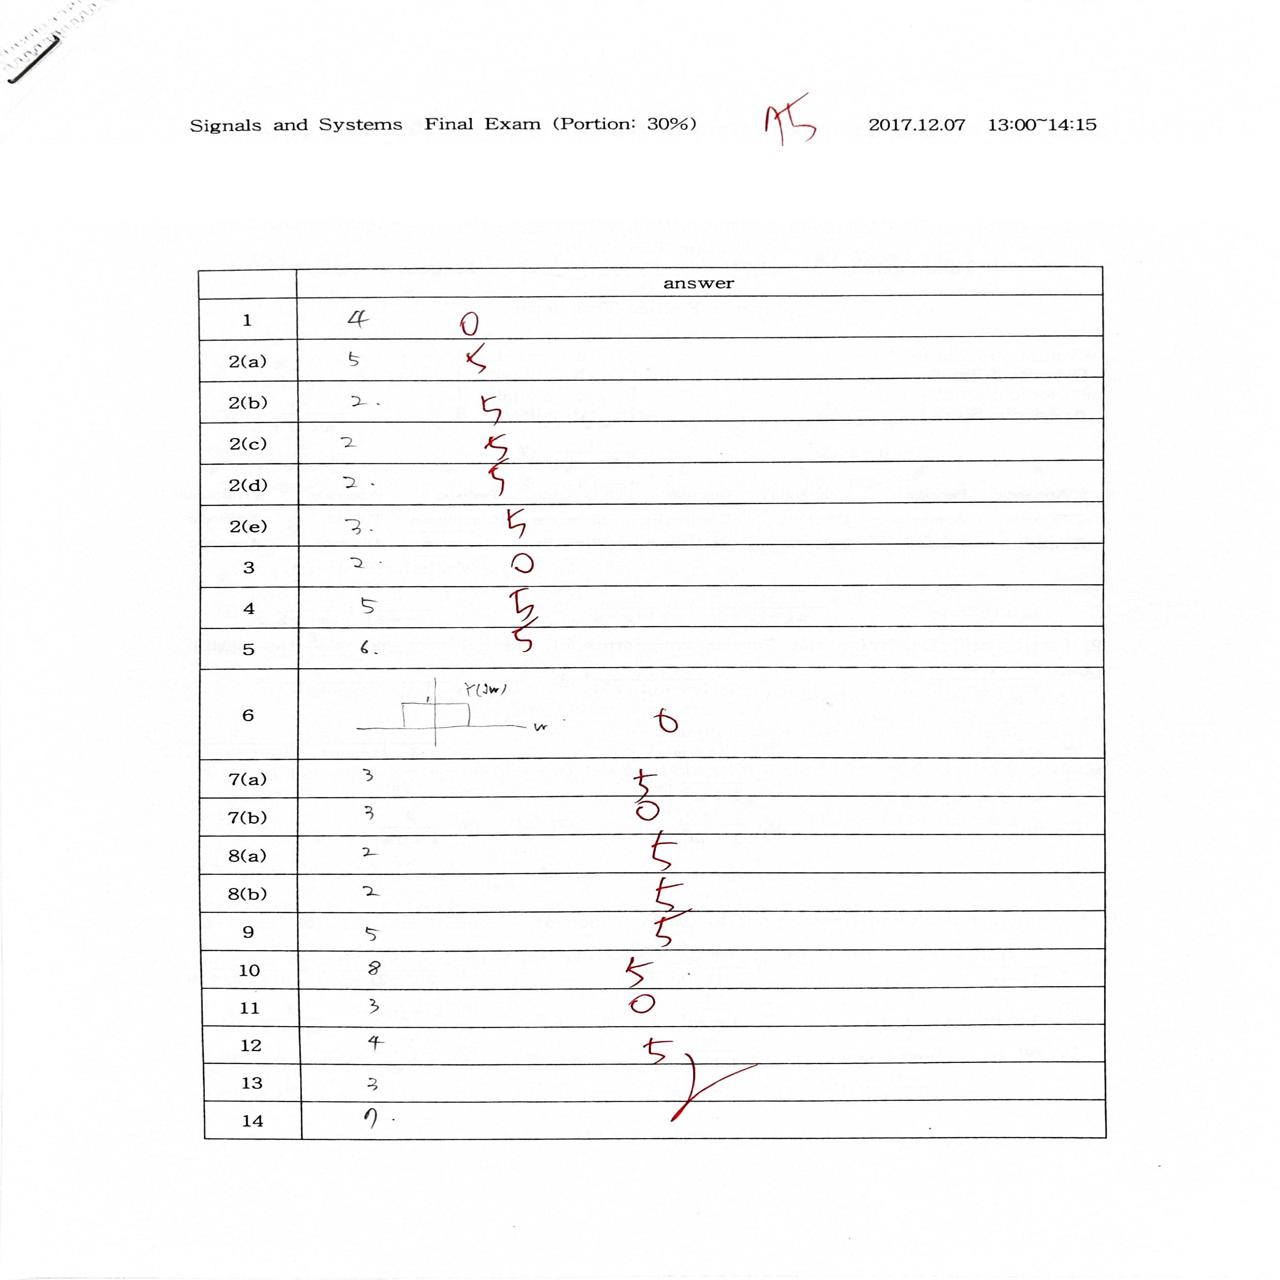 Signals and Systems Final Exam (Portion: 30%) 75 2017.12.07 13:00~14:15
answer
1 4 0
2(a) 5 5
2(b) 2. 5
2(c) 2 5
2(d) 2. 5
2(e) 3. 5
3 2. 0
4 5 5
5 6. 5
6 Y(jw) w 0
7(a) 3 5
7(b) 3 0
8(a) 2 5
8(b) 2 5
9 5 5
10 8 5
11 3 0
12 4 5
13 3
14 7.